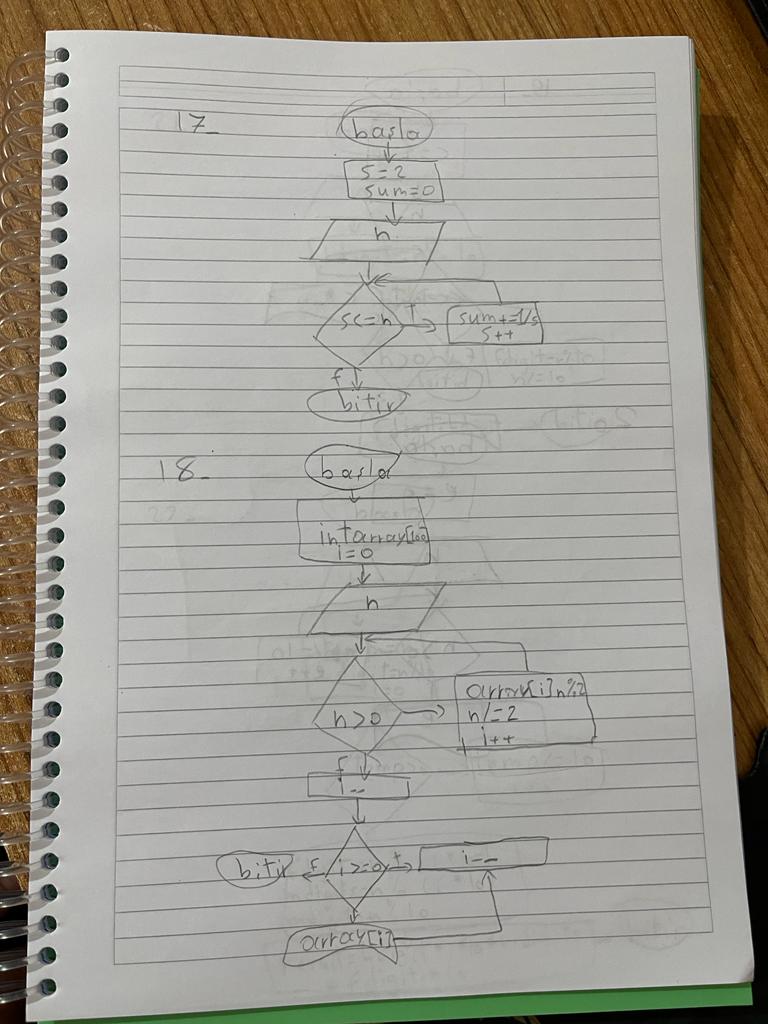 17_
basla
s=2
sum=0
n
s<=n
T
sum+=1/s
s++
f
bitir
18_
basla
int array[100]
i=0
n
n>0
array[i]n%2
n/=2
i++
f
i--
bitir
f
i>=0
t
i--
array[i]